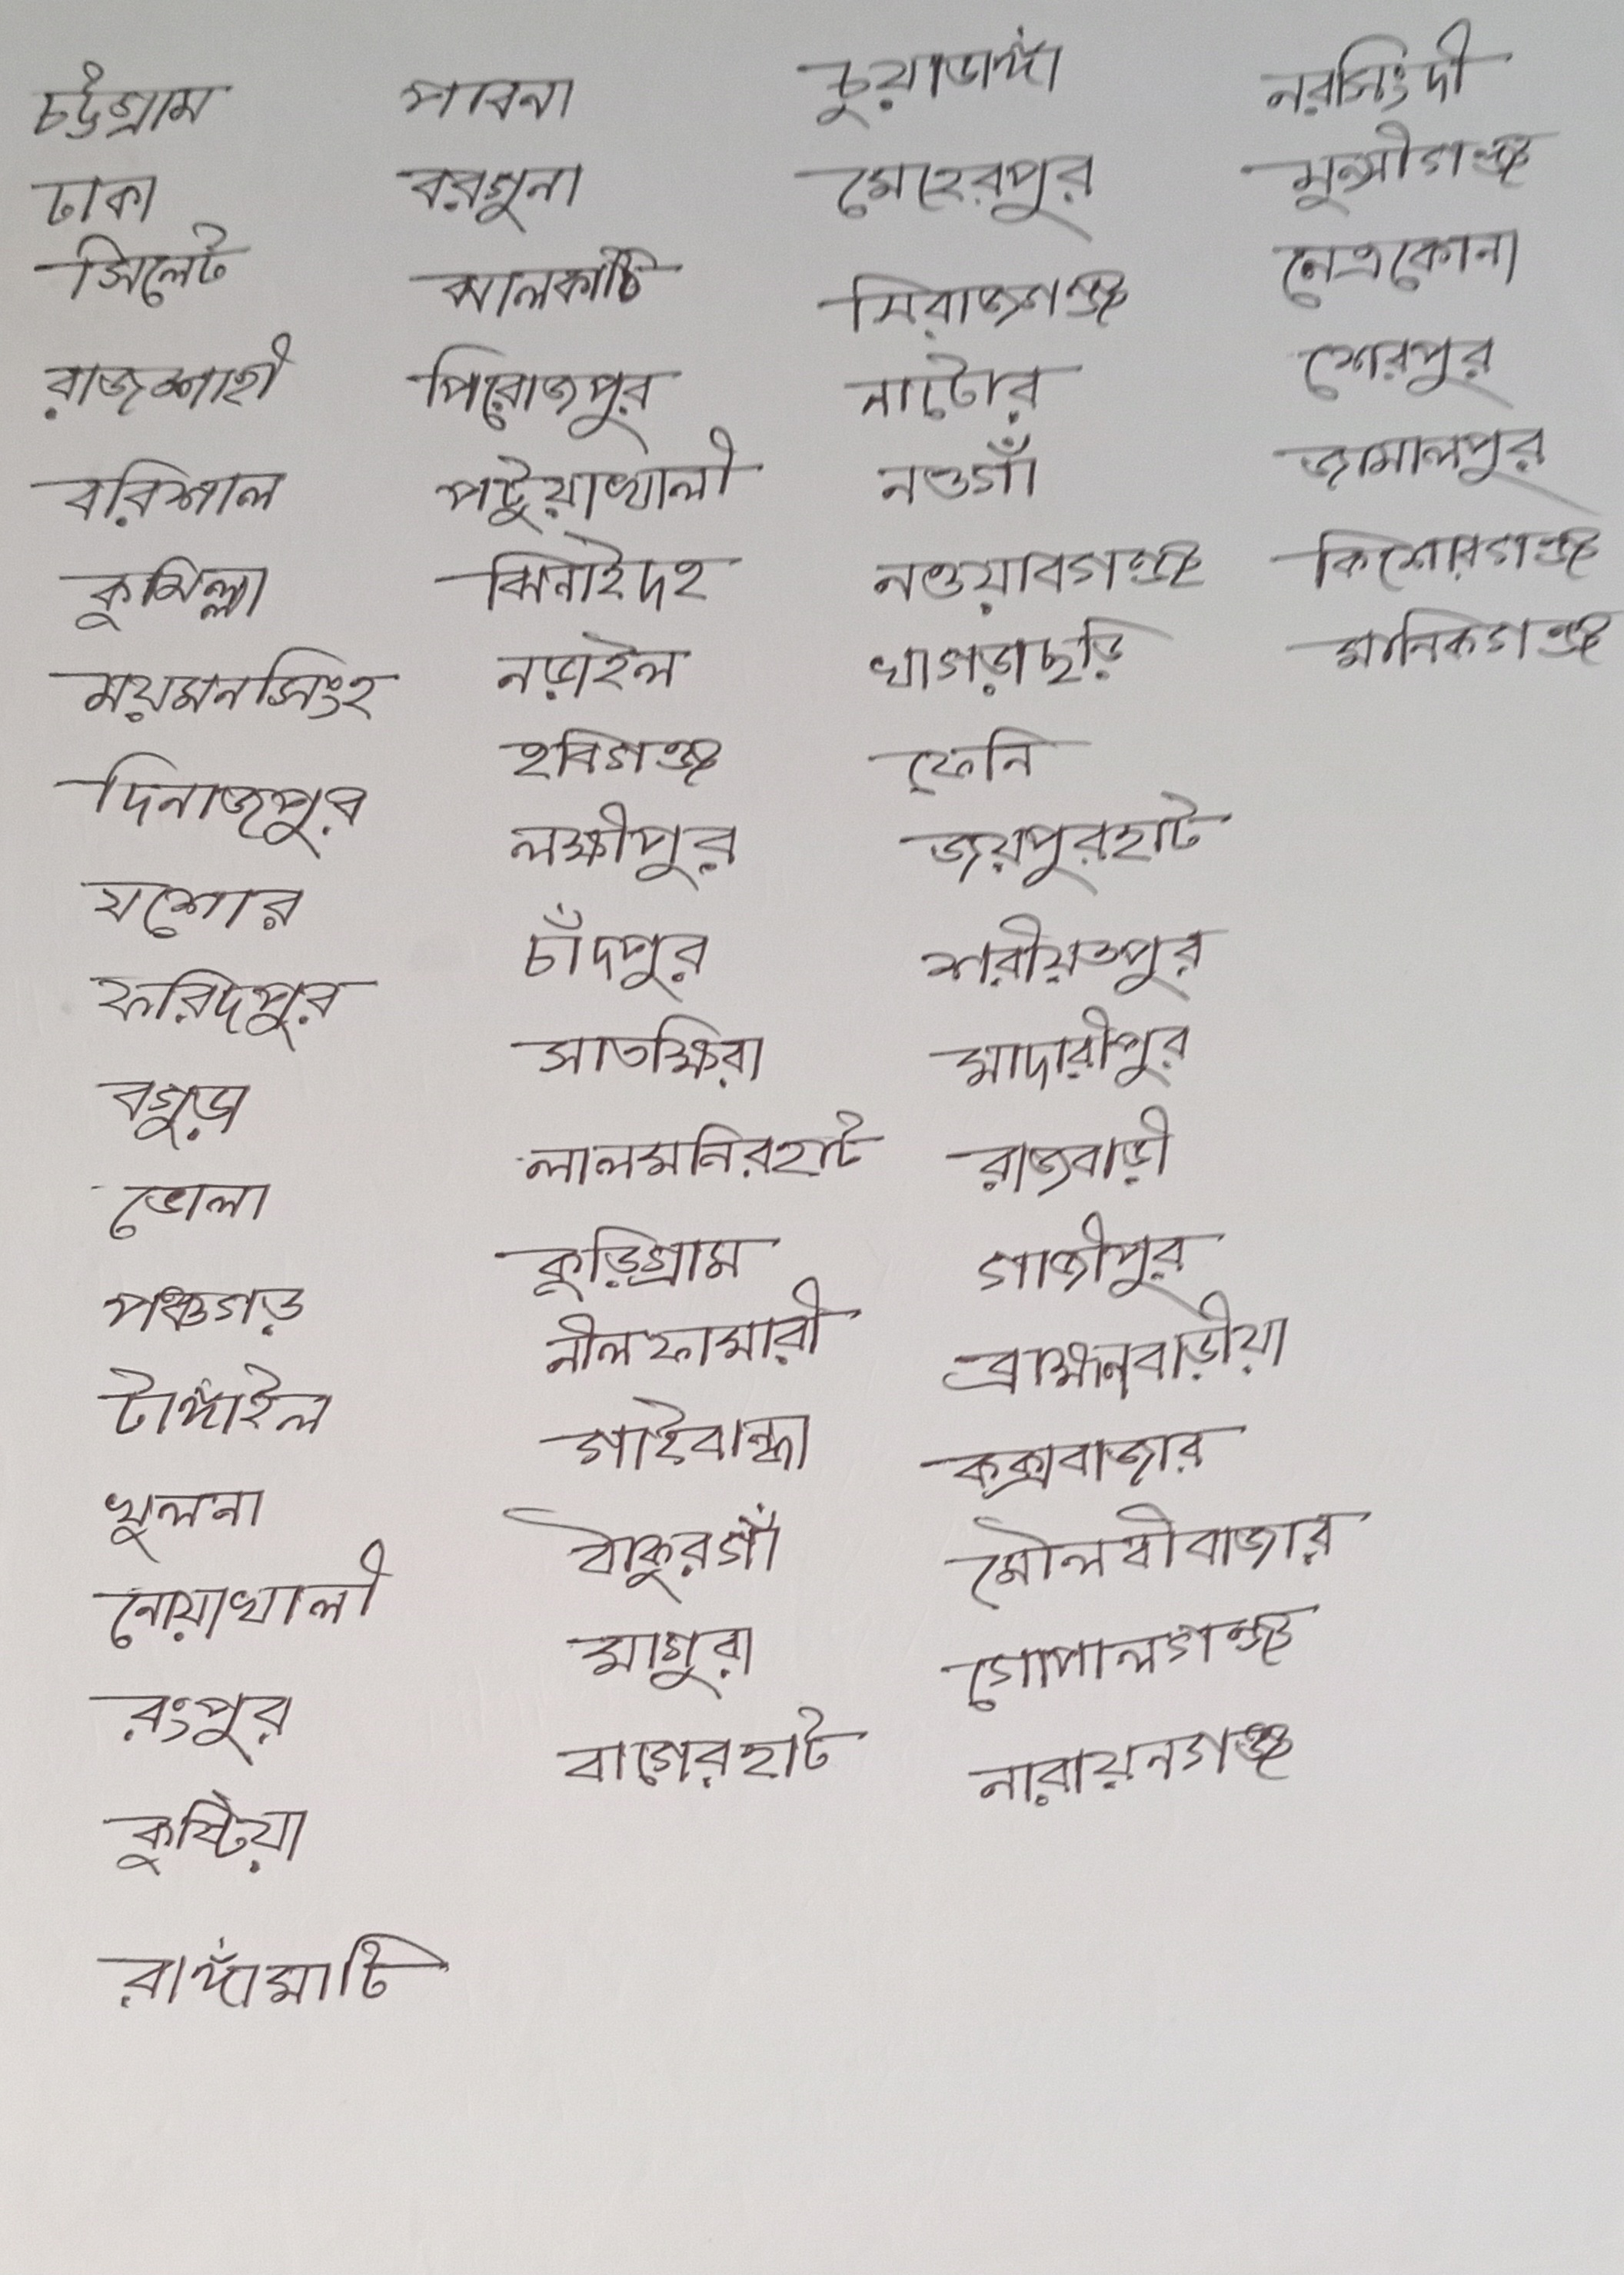 চট্টগ্রাম
ঢাকা
সিলেট
রাজশাহী
বরিশাল
কুমিল্লা
ময়মনসিংহ
দিনাজপুর
যশোর
ফরিদপুর
বগুড়া
ভোলা
পঞ্চগড়
টাঙ্গাইল
খুলনা
নোয়াখালী
রংপুর
কুষ্টিয়া
রাঙ্গাঁমাটি
পাবনা
বরগুনা
ঝালকাঠি
পিরোজপুর
পটুয়াখালী
ঝিনাইদহ
নড়াইল
হবিগঞ্জ
লক্ষীপুর
চাঁদপুর
সাতক্ষিরা
লালমনিরহাট
কুড়িগ্রাম
নীলফামারী
গাইবান্ধা
ঠাকুরগাঁ
মাগুরা
বাগেরহাট
চুয়াডাঙ্গাঁ
মেহেরপুর
সিরাজগঞ্জ
নাটোর
নওগাঁ
নওয়াবগঞ্জ
খাগড়াছড়ি
ফেনি
জয়পুরহাট
শরীয়তপুর
মাদারীপুর
রাজবাড়ী
গাজীপুর
ব্রাহ্মনবাড়ীয়া
কক্সবাজার
মৌলবীবাজার
গোপালগঞ্জ
নারায়নগঞ্জ
নরসিংদী
মুন্সীগঞ্জ
নেত্রকোনা
শেরপুর
জামালপুর
কিশোরগঞ্জ
মানিকগঞ্জ